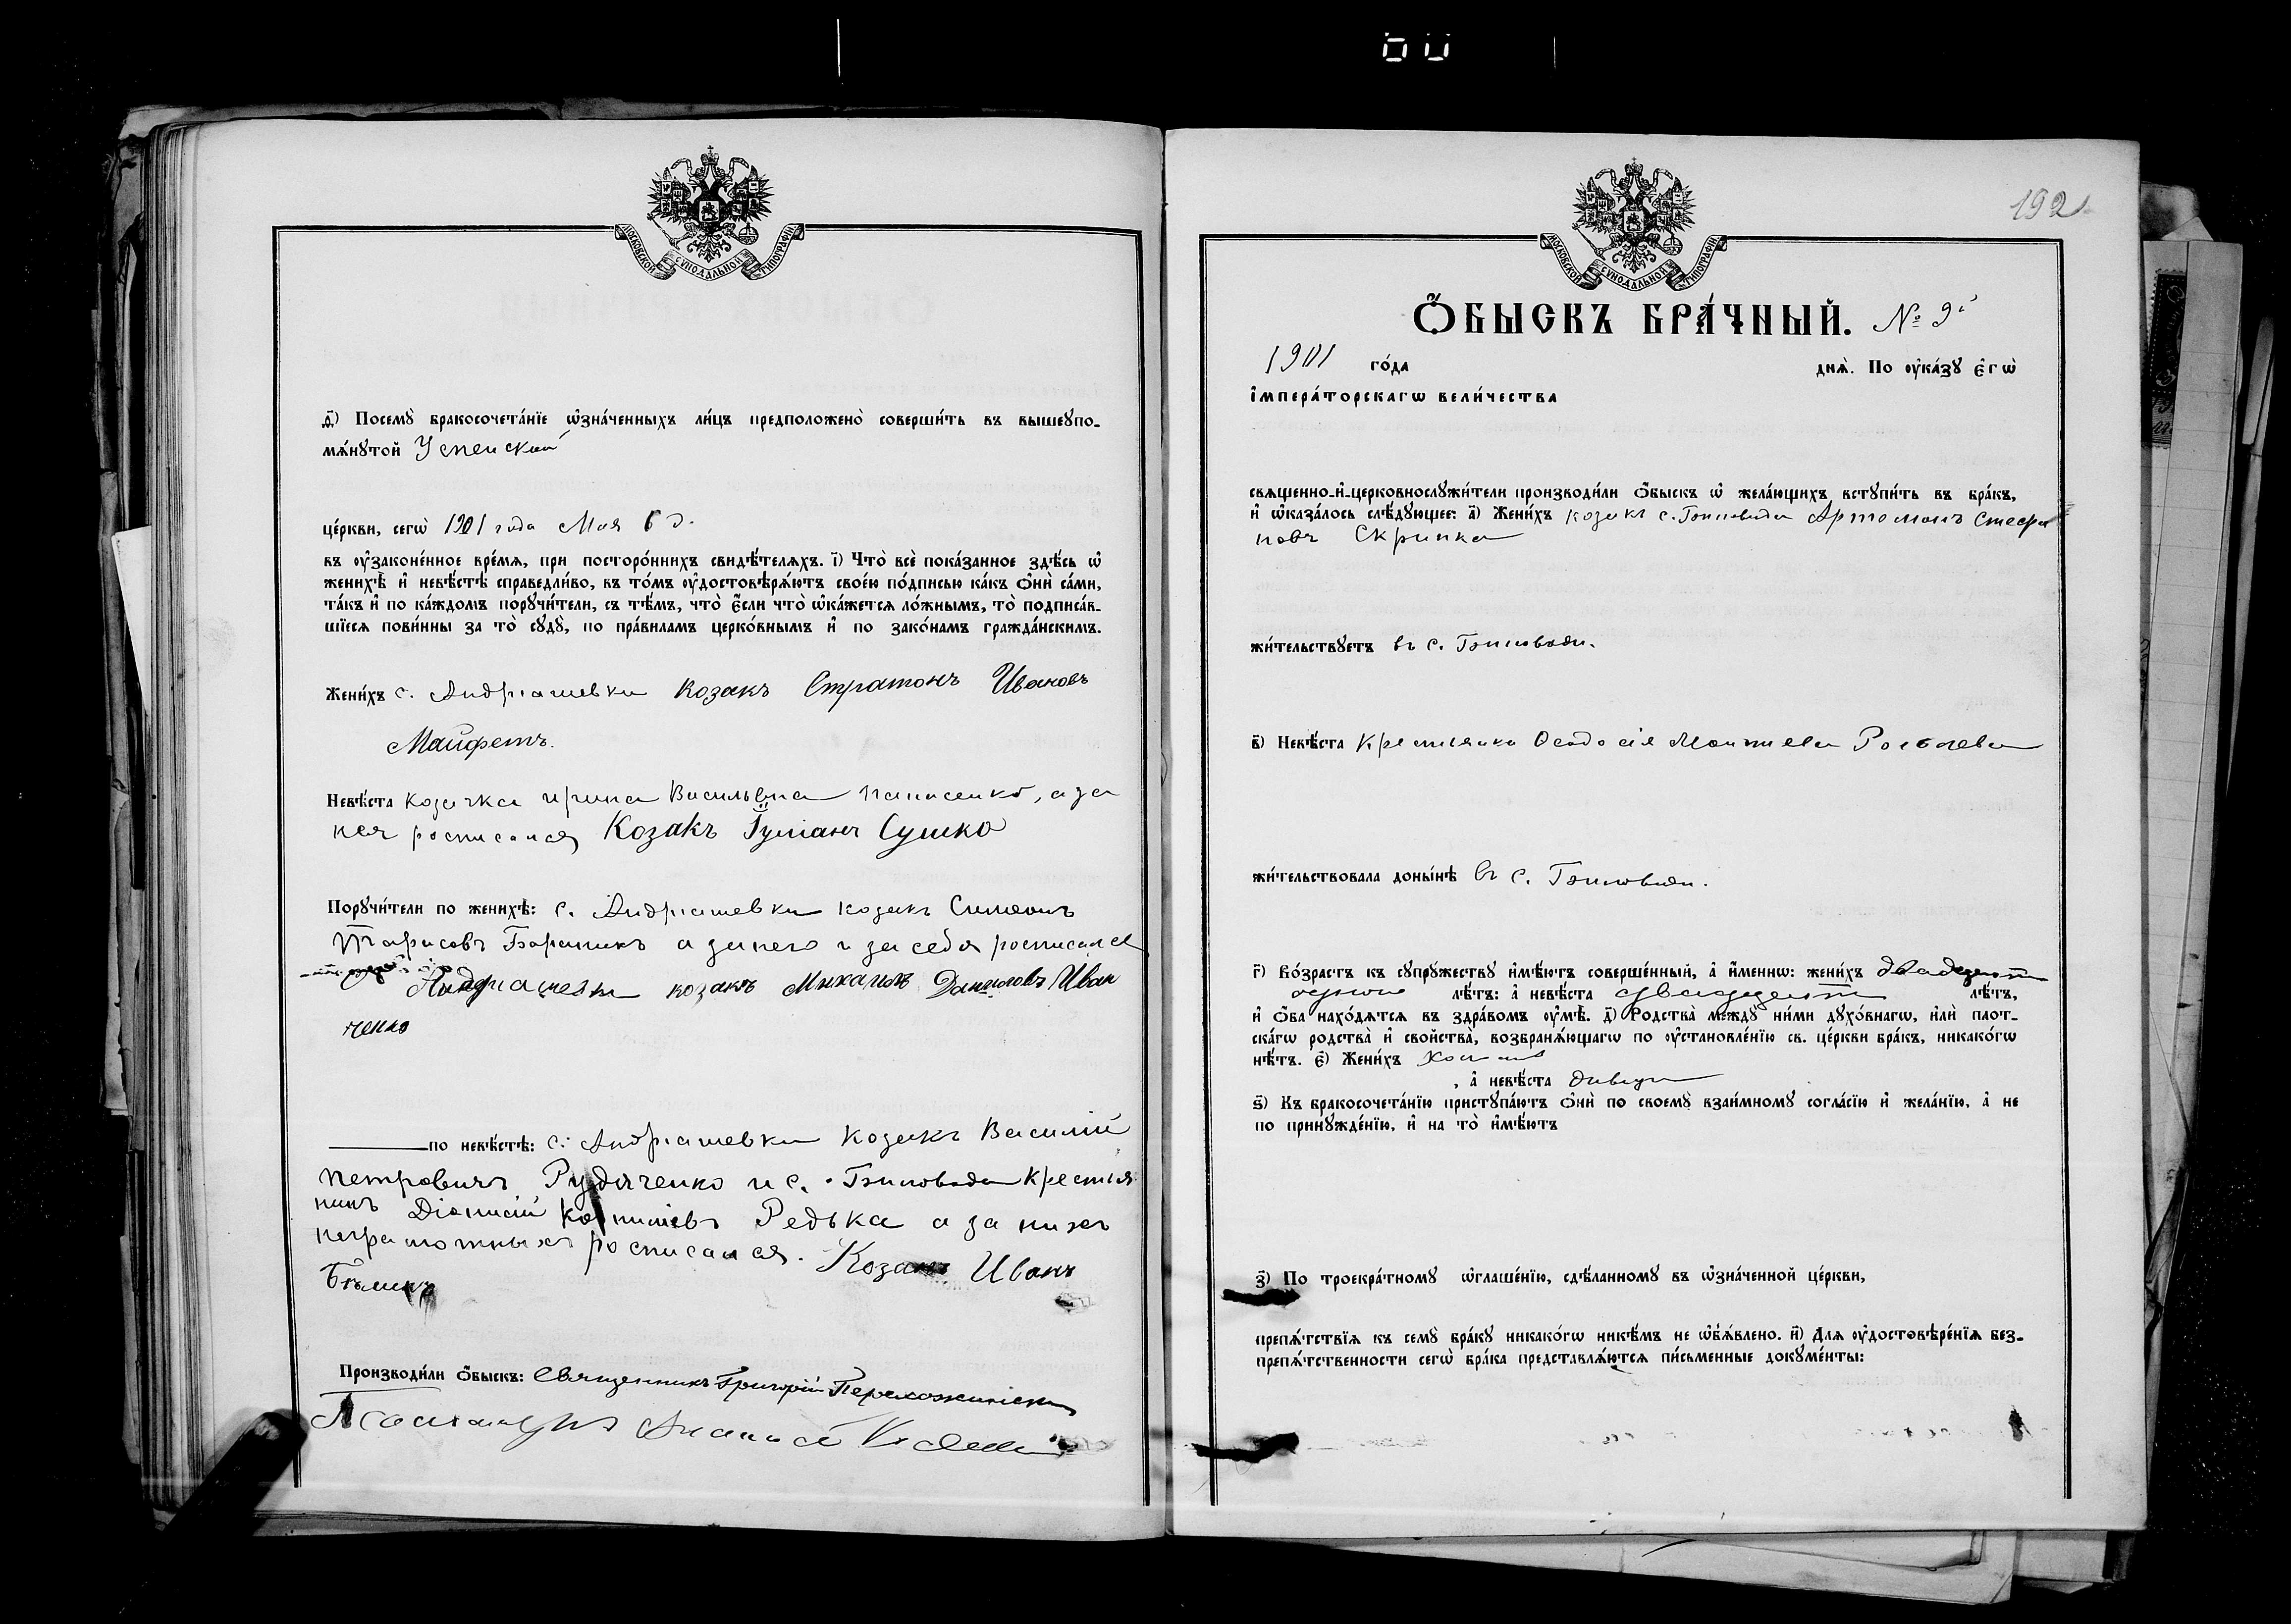 МОСКОВСКОЙ СѴНОДАЛЬНОЙ ТИПОГРАФІИ
ѳ҃) Посемꙋ̀ бракосочета́нїе ѡ҆зна́ченныхъ ли́цъ предположено̀ соверши́ть въ вышеꙋпо-
мѧ́нꙋтой Успенской
це́ркви, сегѡ̀ 1901 года Мая 6 д.
въ оу҆законе́нное вре́мя, при посторо́ннихъ свидѣ́телѧхъ. і҃) Что̀ всѐ пока́занное здѣ́сь ѡ҆
женихѣ̀ и҆ невѣ́стѣ справедли́во, въ то́мъ оу҆достовѣрѧ́ютъ свое́ю по́дписью ка́къ ѻ҆нѝ са́ми,
та́къ и҆ по ка́ждомъ порꙋчи́тели, съ тѣ́мъ, что̀ є҆́сли что̀ ѡ҆ка́жется ло́жнымъ, то̀ подписа́в-
шїеся пови́нны за то̀ сꙋдꙋ̀, по пра́виламъ церко́внымъ и҆ по зако́намъ гражда́нскимъ.
Жени́хъ с. Андріашевки Козакъ Стратонъ Ивановъ
Майфетъ.
Невѣ́ста козачка Ирина Васильевна Панасенко, а за
нея росписался Козакъ Іуліанъ Сушко
Порꙋчи́тели по женихѣ̀: с. Андріашевки козакъ Симеонъ
Тарасовъ а за него и за себя росписался
Андріашевки козакъ Михаилъ Даниловъ Иван
ченко
по невѣ́стѣ: с. Андріашевки Козакъ Василій
Петровичъ Рудяченко и с. Гапововди Крестья
нинъ Діонисій Редька а за нихъ
неграмотныхъ росписался. Козакъ Иванъ
Производи́ли ѻ҆́быскъ: Священникъ Григорій
192
МОСКОВСКОЙ СѴНОДАЛЬНОЙ ТИПОГРАФІИ
Ѻ҆́БЫСКЪ БРА́ЧНЫЙ. № 9й
1901 го́да дня̀. По оу҆ка́зꙋ є҆гѡ̀
і҆мпера́торскагѡ вели́чества
священно-и҆-церковнослꙋжи́тели производи́ли ѻ҆́быскъ ѡ҆ жела́ющихъ вступи́ть въ бра́къ,
и҆ ѡ҆каза́лось слѣ́дꙋющее: а҃) Жени́хъ козакъ с. Артемонъ Стефа
новъ Скрипка
жи́тельствꙋетъ въ с.
в҃) Невѣ́ста Крестьянка Ѳеодосія
жи́тельствовала доны́нѣ въ с.
г҃) Во́зрастъ къ сꙋпрꙋжествꙋ и҆мѣ́ютъ соверше́нный, а҆ и҆́меннѡ: жени́хъ двадцати
одного лѣ́тъ: а҆ невѣ́ста двадцати лѣ́тъ,
и҆ ѻ҆́ба нахо́дятся въ здра́вомъ оу҆мѣ̀. д҃) Родства̀ междꙋ̀ ни́ми дꙋхо́внагѡ, и҆лѝ плот-
ска́гѡ родства̀ и҆ свойства̀, возбранѧ́ющагѡ по оу҆становле́нїю св. це́ркви бра́къ, никако́гѡ
нѣ́тъ. є҃) Жени́хъ холостъ
, а҆ невѣ́ста дивица
ѕ҃) Къ бракосочета́нїю пристꙋпа́ютъ ѻ҆нѝ по своемꙋ̀ взаи́мномꙋ согла́сїю и҆ жела́нїю, а҆ не
по принꙋжде́нїю, и҆ на то̀ и҆мѣ́ютъ
з҃) По троекра́тномꙋ ѡ҆глаше́нїю, сдѣ́ланномꙋ въ ѡ҆зна́ченной це́ркви,
препѧ́тствїя къ семꙋ̀ бра́кꙋ никако́гѡ никѣ́мъ не ѡ҆б̾ѧ́влено. и҃) Для оу҆достовѣре́нїя без-
препѧ́тственности сегѡ̀ бра́ка представлѧ́ются пи́сьменные докꙋме́нты: